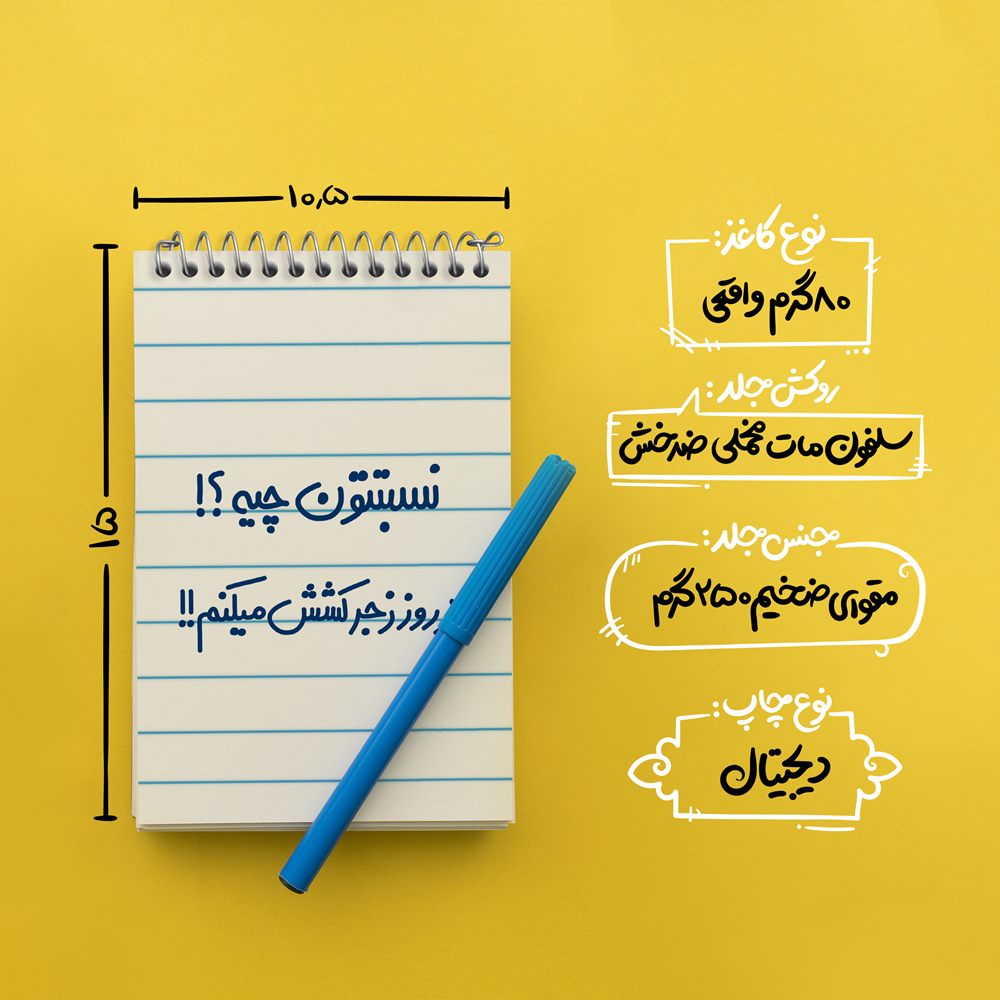 ۱۰٫۵
۱۵
نسبتتون چیه ؟!
روز زجر کشش میکنم!!
نوع کاغذ:
۸۰گرم واقعی
روکش جلد:
سلفون مات مخملی ضدخش
جنس جلد:
مقوای ضخیم ۲۵۰گرم
نوع چاپ:
دیجیتال